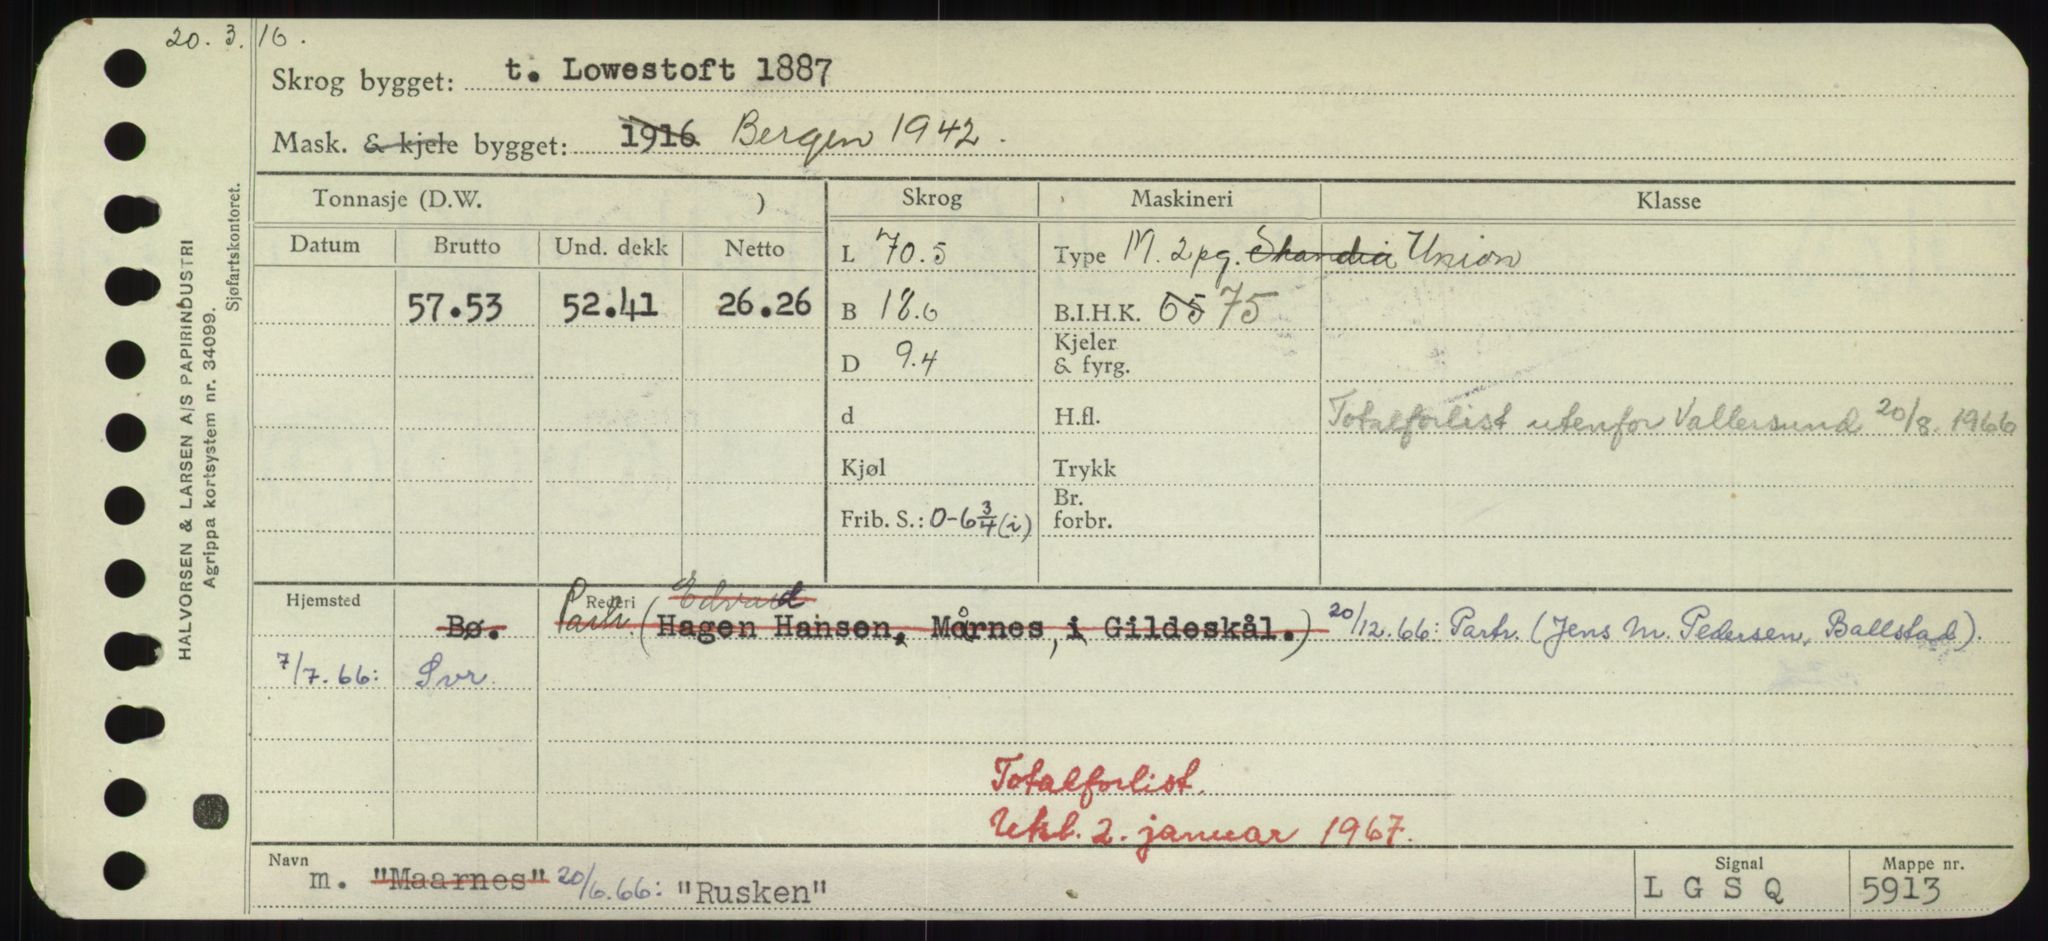 20. 3. 16.
Skrog bygget: t. Lowestoft 1887
Mask. & kjele bygget: 1916 Bergen 1942.
Tonnasje (D.W. ) Skrog Maskineri Klasse
Datum Brutto Und. dekk Netto L 70.5 Type M. 2 pg. Skandia Union
57.53 52.41 26.26 B 18.6 B.I.H.K. 65 75
D 9.4 Kjeler & fyrg.
d H.fl. Totalforlist utenfor Vallersund 20/8. 1966
Kjøl Trykk
Frib. S.: 0-6 3/4 (i) Br. forbr.
Hjemsted Rederi Edvard
Bø. Partr. (Hagen Hansen, Mårnes, i Gildeskål.) 20/12.66: Partr. (Jens M. Pedersen, Ballstad).
7/7.66: Svr.
Totalforlist.
Ukl. 2. januar 1967.
Navn Signal Mappe nr.
m. "Maarnes" 20/6.66: "Rusken" L G S Q 5913
HALVORSEN & LARSEN A/S PAPIRINDUSTRI
Agrippa kortsystem nr. 34099.
Sjøfartskontoret.